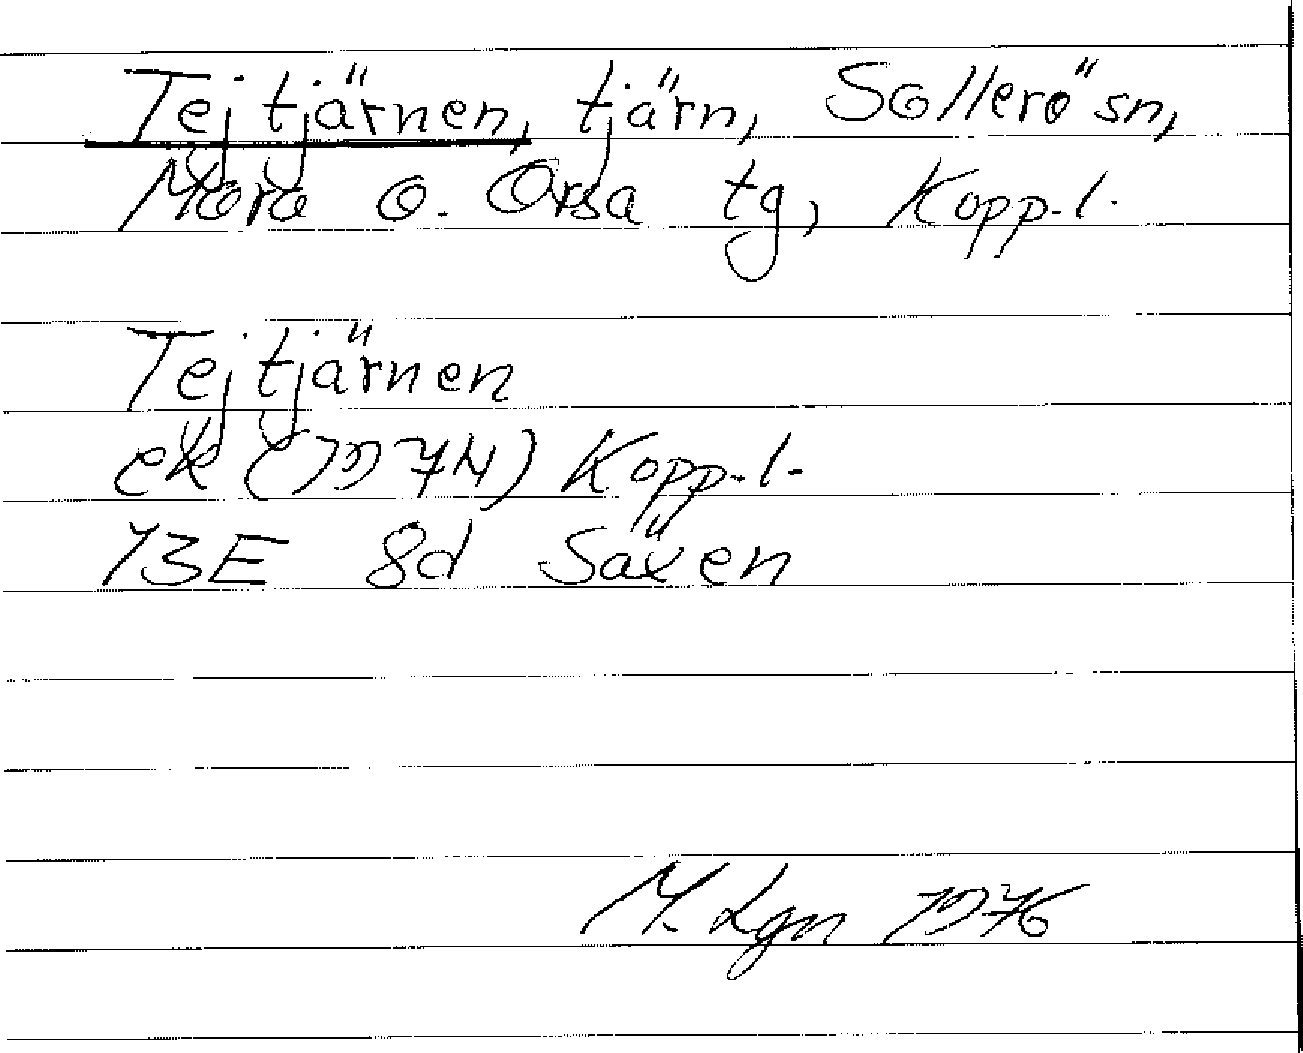 Tejtjärnen, tjärn, Sollerö sn,
Mora o. Orsa tg, Kopp.l.
Tejtjärnen
ek (1974) Kopp.l.
13E 8d Säxen
M. Lgn 1976